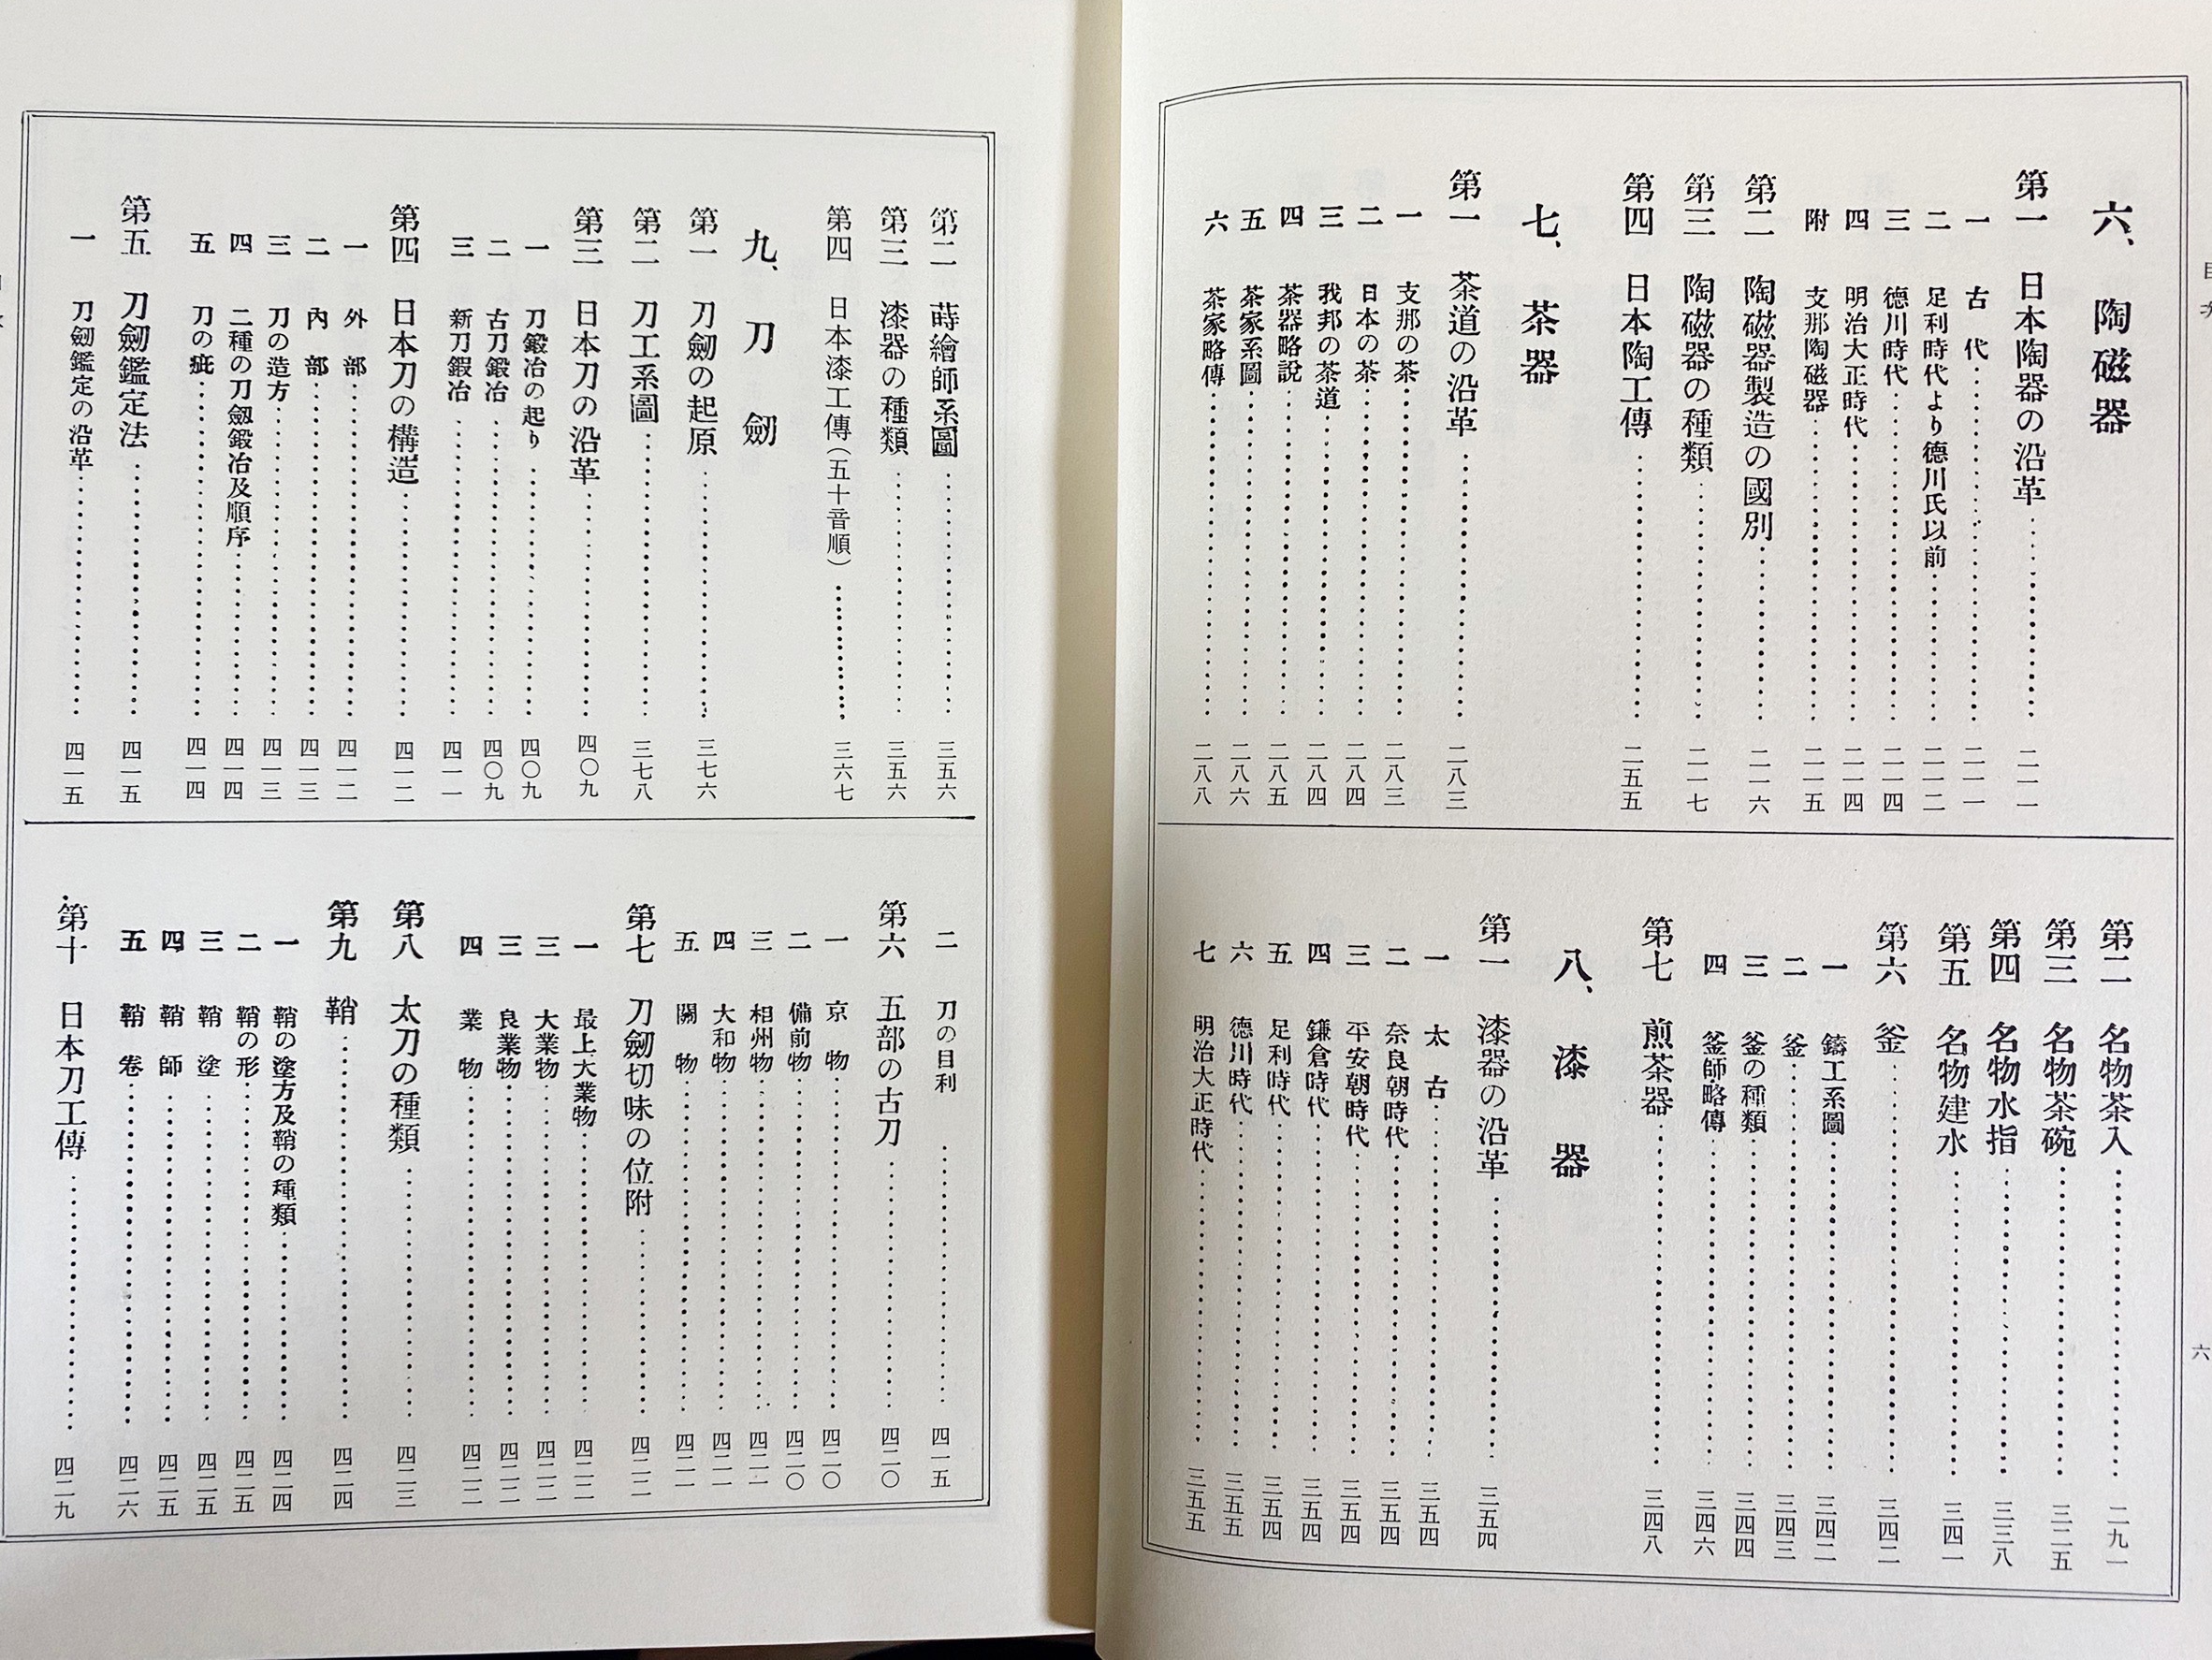 目次
六
六、陶磁器
第一 日本陶器の沿革……二一一
一 古代……二一一
二 足利時代より德川氏以前……二一二
三 德川時代……二一四
四 明治大正時代……二一四
附 支那陶磁器……二一五
第二 陶磁器製造の國別……二一六
第三 陶磁器の種類……二一七
第四 日本陶工傳……二五五
七、茶器
第一 茶道の沿革……二八三
一 支那の茶……二八三
二 日本の茶……二八四
三 我邦の茶道……二八四
四 茶器略說……二八五
五 茶家系圖……二八六
六 茶家略傳……二八八
第二 名物茶入……二九一
第三 名物茶碗……三二五
第四 名物水指……三三八
第五 名物建水……三四一
第六 釜……三四二
一 鑄工系圖……三四二
二 釜……三四三
三 釜の種類……三四四
四 釜師略傳……三四六
第七 煎茶器……三四八
八、漆器
第一 漆器の沿革……三五四
一 太古……三五四
二 奈良朝時代……三五四
三 平安朝時代……三五四
四 鎌倉時代……三五四
五 足利時代……三五四
六 德川時代……三五五
七 明治大正時代……三五五
第二 蒔繪師系圖……三五六
第三 漆器の種類……三五六
第四 日本漆工傳(五十音順)……三六七
九、刀劒
第一 刀劒の起原……三七六
第二 刀工系圖……三七八
第三 日本刀の沿革……四〇九
一 刀鍛冶の起り……四〇九
二 古刀鍛冶……四〇九
三 新刀鍛冶……四一一
第四 日本刀の構造……四一二
一 外部……四一二
二 內部……四一三
三 刀の造方……四一三
四 二種の刀劔鍛冶及順序……四一四
五 刀の疵……四一四
第五 刀劒鑑定法……四一五
一 刀劒鑑定の沿革……四一五
二 刀の目利……四一五
第六 五部の古刀……四二〇
一 京物……四二〇
二 備前物……四二〇
三 相州物……四二一
四 大和物……四二一
五 關物……四二一
第七 刀劒切味の位附……四二二
一 最上大業物……四二二
三 大業物……四二二
三 良業物……四二二
四 業物……四二二
第八 太刀の種類……四二三
第九 鞘……四二四
一 鞘の塗方及鞘の種類……四二四
二 鞘の形……四二五
三 鞘塗……四二五
四 鞘師……四二五
五 鞘卷……四二六
第十 日本刀工傳……四二九